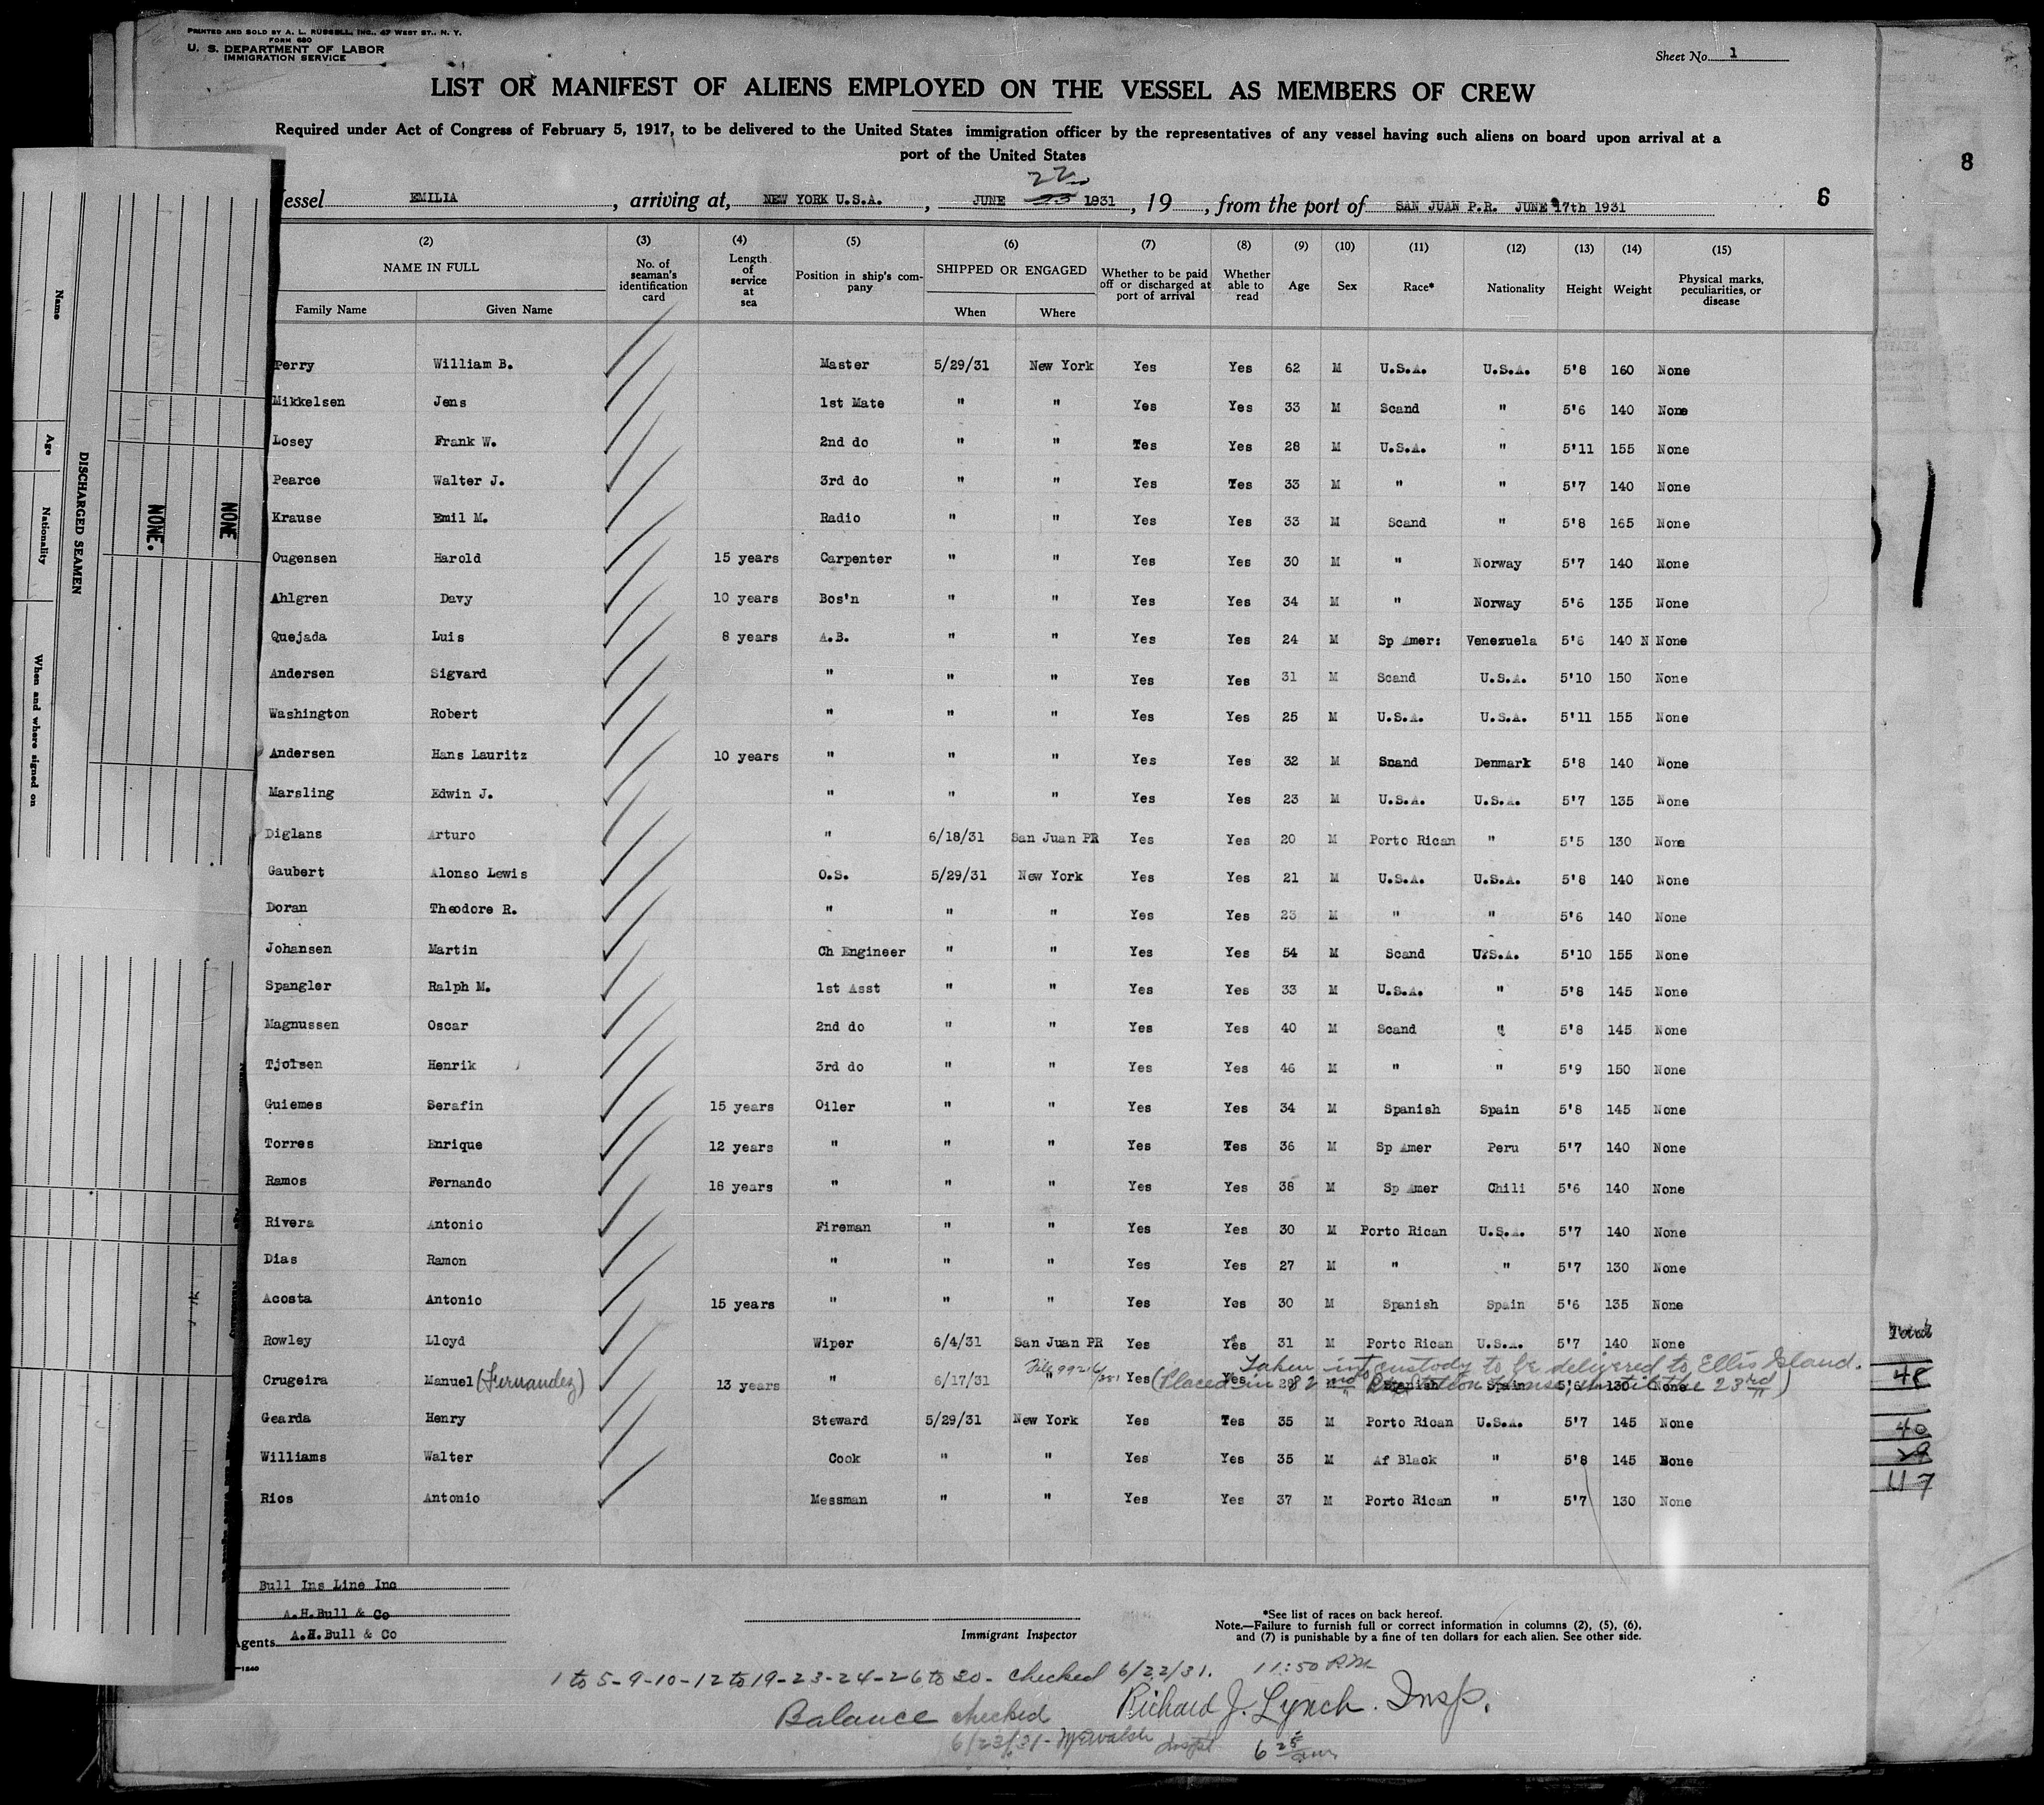 PRINTED AND SOLD BY A. L. RUSSELL, INC., 47 WEST ST., N. Y.
FORM 680
U. S. DEPARTMENT OF LABOR
IMMIGRATION SERVICE
Sheet No. 1
LIST OR MANIFEST OF ALIENS EMPLOYED ON THE VESSEL AS MEMBERS OF CREW
Required under Act of Congress of February 5, 1917, to be delivered to the United States immigration officer by the representatives of any vessel having such aliens on board upon arrival at a
port of the United States
8
22
essel EMILIA, arriving at, NEW YORK U.S.A., JUNE 1931, 19, from the port of SAN JUAN P.R. JUNE 17th 1931
6
(2) (3) (4) (5) (6) (7) (8) (9) (10) (11) (12) (13) (14) (15)
NAME IN FULL
Family Name Given Name
No. of seaman's identification card
Length of service at sea
Position in ship's company
SHIPPED OR ENGAGED
When Where
Whether to be paid off or discharged at port of arrival
Whether able to read
Age Sex Race* Nationality Height Weight
Physical marks, peculiarities, or disease
Perry William B. Master 5/29/31 New York Yes Yes 62 M U.S.A. U.S.A. 5'8 160 None
Mikkelsen Jens 1st Mate " " Yes Yes 33 M Scand " 5'6 140 None
Losey Frank W. 2nd do " " Yes Yes 28 M U.S.A. " 5'11 155 None
Pearce Walter J. 3rd do " " Yes Yes 33 M " " 5'7 140 None
Krause Emil M. Radio " " Yes Yes 33 M Scand " 5'8 165 None
Ougensen Harold 15 years Carpenter " " Yes Yes 30 M " Norway 5'7 140 None
Ahlgren Davy 10 years Bos'n " " Yes Yes 34 M " Norway 5'6 135 None
Quejada Luis 8 years A.B. " " Yes Yes 24 M Sp Amer: Venezuela 5'6 140 N None
Andersen Sigvard " " " Yes Yes 31 M Scand U.S.A. 5'10 150 None
Washington Robert " " " Yes Yes 25 M U.S.A. U.S.A. 5'11 155 None
Andersen Hans Lauritz 10 years " " " Yes Yes 32 M Snand Denmark 5'8 140 None
Marsling Edwin J. " " " Yes Yes 23 M U.S.A. U.S.A. 5'7 135 None
Diglans Arturo " 6/18/31 San Juan PR Yes Yes 20 M Porto Rican " 5'5 130 None
Gaubert Alonso Lewis O.S. 5/29/31 New York Yes Yes 21 M U.S.A. U.S.A. 5'8 140 None
Doran Theodore R. " " " Yes Yes 23 M " " 5'6 140 None
Johansen Martin Ch Engineer " " Yes Yes 54 M Scand U.S.A. 5'10 155 None
Spangler Ralph M. 1st Asst " " Yes Yes 33 M U.S.A. " 5'8 145 None
Magnussen Oscar 2nd do " " Yes Yes 40 M Scand " 5'8 145 None
Tjolsen Henrik 3rd do " " Yes Yes 46 M " " 5'9 150 None
Guiemes Serafin 15 years Oiler " " Yes Yes 34 M Spanish Spain 5'8 145 None
Torres Enrique 12 years " " " Yes Yes 36 M Sp Amer Peru 5'7 140 None
Ramos Fernando 18 years " " " Yes Yes 38 M Sp Amer Chili 5'6 140 None
Rivera Antonio Fireman " " Yes Yes 30 M Porto Rican U.S.A. 5'7 140 None
Dias Ramon " " " Yes Yes 27 M " " 5'7 130 None
Acosta Antonio 15 years " " " Yes Yes 30 M Spanish Spain 5'6 135 None
Rowley Lloyd Wiper 6/4/31 San Juan PR Yes Yes 31 M Porto Rican U.S.A. 5'7 140 None
Taken into custody to be delivered to Ellis Island.
Crugeira Manuel (Fernandez) 13 years " 6/17/31 " Yes Yes 29 M Spanish Spain 5'6 130 None
(Placed in 82nd Station House until the 23rd)
Gearda Henry Steward 5/29/31 New York Yes Yes 35 M Porto Rican U.S.A. 5'7 145 None
Williams Walter Cook " " Yes Yes 35 M Af Black " 5'8 145 None
Rios Antonio Messman " " Yes Yes 37 M Porto Rican " 5'7 130 None
Total
48
40
29
117
Bull Ins Line Inc
A.H.Bull & Co
Agents A.H.Bull & Co
Immigrant Inspector
*See list of races on back hereof.
Note.—Failure to furnish full or correct information in columns (2), (5), (6),
and (7) is punishable by a fine of ten dollars for each alien. See other side.
1 to 5-9-10-12 to 19-23-24-26 to 30- checked 6/22/31. 11:50 P.M.
Richard J. Lynch. Insp.
Balance checked
6/23/31
6 25
DISCHARGED SEAMEN
Name
Age
Nationality
When and where signed on
NONE.
NONE